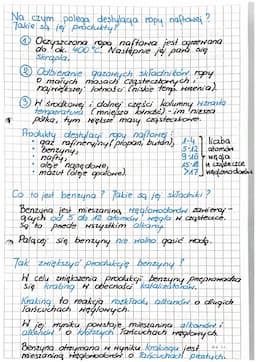 Na czym polega destylacja ropy naftowej?
Jakie są jej produkty?
① Oczyszczona ropa naftowa jest ogrzewana
do ok. 400°C. Następnie jej pary się
skrapla.
② Odbieranie gazowych składników ropy
o małych masach cząsteczkowych i
największej lotności (niskie temp. wrzenia).
③ W środkowej i dolnej części kolumny wzrasta
temperatura (mniejsza lotność) - im niższa
półka, tym większe masy cząsteczkowe.
Produkty destylacji ropy naftowej:
• gaz rafineryjny (propan, butan), 1-4
• benzyny, 5-12
• nafty, 9-16
• oleje napędowe, 15-18
• mazut (oleje opałowe). >17
liczba
atomów
węgla
w cząsteczce
węglowodorów
Co to jest benzyna? Jakie są jej składniki?
Benzyna jest mieszaniną węglowodorów zawiera-
jących od 5 do 12 atomów węgla w cząsteczce.
Są to przede wszystkim alkany.
Palącej się benzyny nie wolno gasić wodą.
Jak zwiększyć produkcję benzyny?
W celu zwiększenia produkcji benzyny przeprowadza
się kraking w obecności katalizatorów.
Kraking to reakcja rozkładu alkanów o długich
łańcuchach węglowych.
W jej wyniku powstaje mieszanina alkanów i
alkenów o krótszych łańcuchach węglowych.
Benzyna otrzymana w wyniku krakingu jest
mieszaniną węglowodorów o łańcuchach prostych.